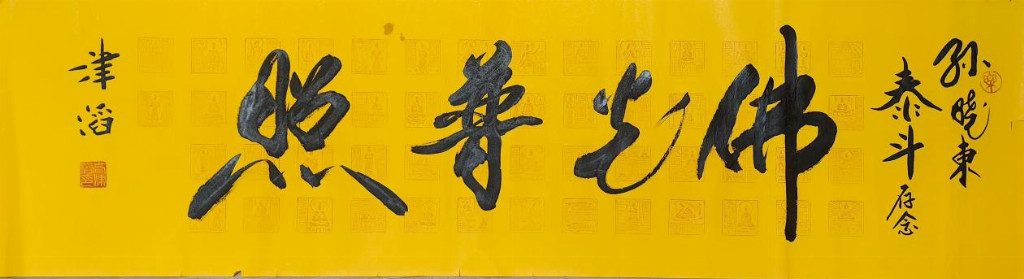 孙晓东
泰斗存念
佛光普照
津滔